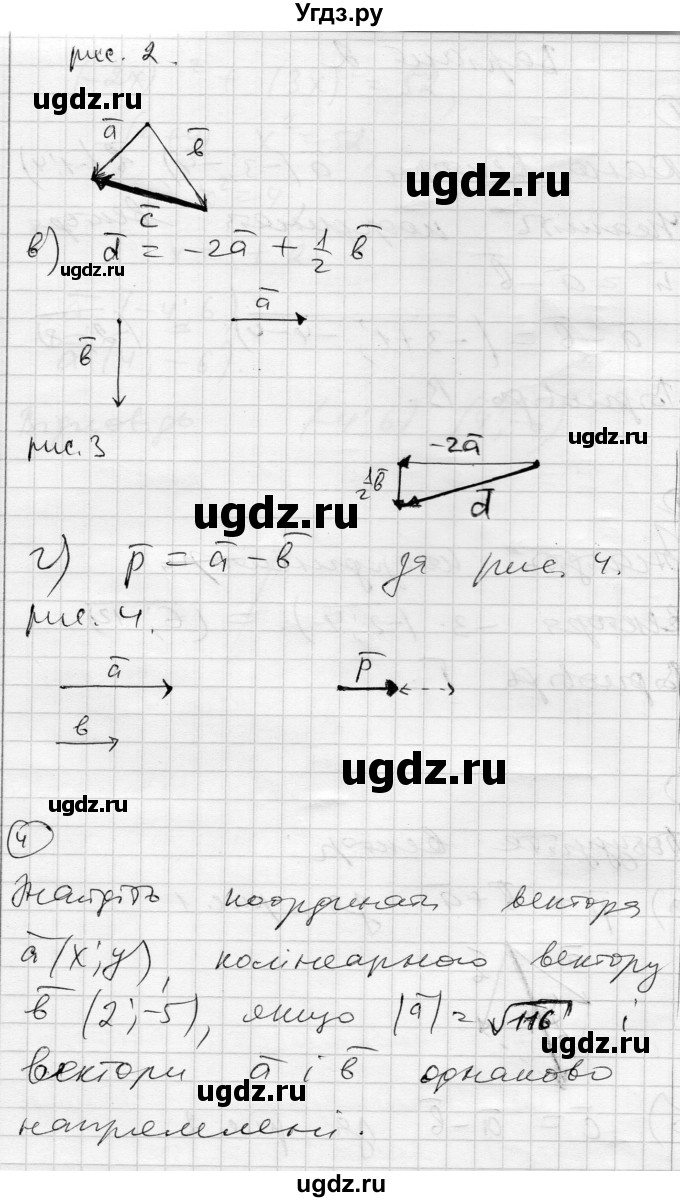 Угдз.ру
рис. 2.
ugdz.ru
a̅
b̅
ugdz.ru
c̅
в) d̅ = -2a̅ + 1/2 b̅
ugdz.ru
a̅
b̅
рис. 3
-2a̅
ugdz.ru
1/2 b̅
d̅
ugdz.ru
г) p̅ = a̅ - b̅ для рис. 4.
рис. 4.
a̅
p̅
в
ugdz.ru
ugdz.ru
4
Знайдіть координати вектора
a̅ (x; y), колінеарного вектору
b̅ (2; -5), якщо |a̅| = √116 і
ugdz.ru
вектори a̅ і b̅ однаково
ugdz.ru
напрямлені.
ugdz.ru